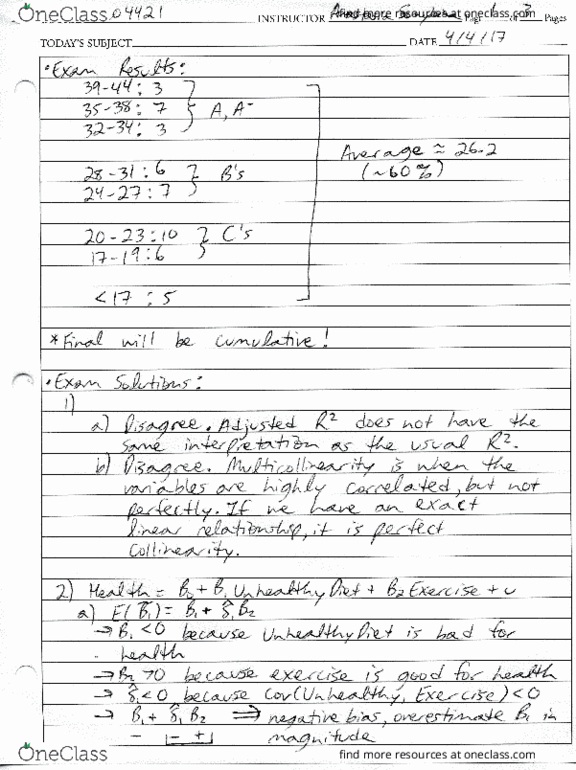 OneClass 04421
INSTRUCTOR find more resources at oneclass.com 3 Pages
TODAY'S SUBJECT DATE 4/4/17
• Exam Results:
39-44: 3
35-38: 7 } A, A-
32-34: 3
Average ≈ 26.2
(~60%)
28-31: 6 } B's
24-27: 7
20-23: 10 } C's
17-19: 6
<17 : 5
* Final will be cumulative!
• Exam Solutions:
1)
a) Disagree. Adjusted R² does not have the
same interpretation as the usual R².
b) Disagree. Multicollinearity is when the
variables are highly correlated, but not
perfectly. If we have an exact
linear relationship, it is perfect
collinearity.
2) Health = B₀ + B₁ Unhealthy Diet + B₂ Exercise + u
a) E(B̃₁) = B₁ + δ̂₁ B₂
→ B₁ < 0 because Unhealthy Diet is bad for
health
→ B₂ > 0 because exercise is good for health
→ δ̂₁ < 0 because Cov(Unhealthy, Exercise) < 0
→ B₁ + δ̂₁ B₂ ⟹ negative bias, overestimate B₁ in
- |- +| magnitude
OneClass find more resources at oneclass.com